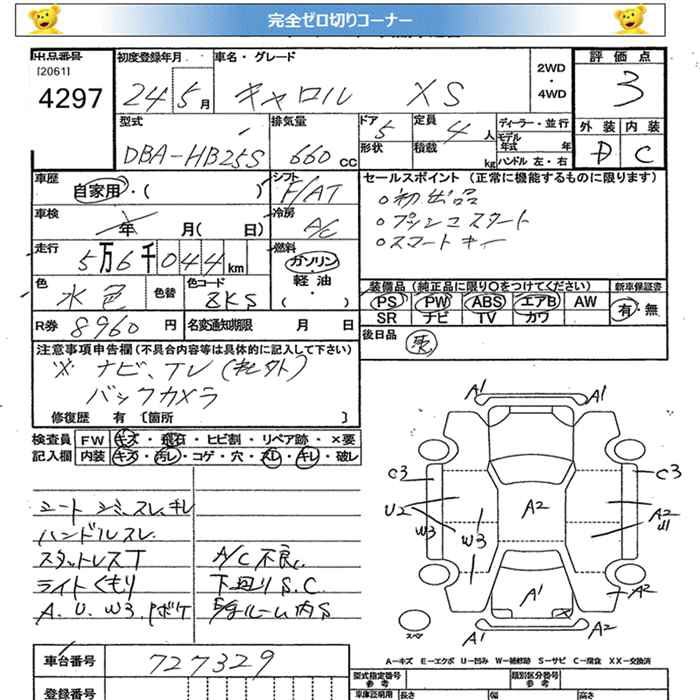 完全ゼロ切りコーナー
出品番号 初度登録年月 車名・グレード 評価点
[2061]
4297 24 5月 キャロル XS 2WD ・ 4WD 3
型式 排気量 ドア 定員 ディーラー・並行 外装 内装
DBA-HB25S 660cc 5 4人 モデル年式 年 D C
形状 積載 kg ハンドル 左・右
車歴 シフト セールスポイント(正常に機能するものに限ります)
自家用・( ) F/AT ○初出品
車検 冷房 ○プッシュスタート
年 月( 日) A/C ○スマートキー
走行 燃料
5万6千044km ガソリン・軽油・( )
色 色替 色コード 装備品(純正品に限り○をつけてください) 新車保証書
水色 8KS PS PW ABS エアB AW 有・無
SR ナビ TV カワ
R券 8960円 名変通知期限 月 日 後日品
注意事項申告欄(不具合内容等は具体的に記入して下さい)
※ナビ、TV
バックカメラ
修復歴 有〔箇所 〕
検査員 FW キズ・飛石・ヒビ割・リペア跡・×要
記入欄 内装 キズ・汚レ・コゲ・穴・スレ・キレ・破レ
シートシミ、スレ、キレ
ハンドルスレ
スタットレスT A/C不良
ライトくもり 下廻りS.C
A.U.W3.Pボケ 内S
A1 A1
C3 C3
U2 A2 A2
W3 W3 U1
A1 A2
A1 A2
スペア
A-キズ E-エクボ U-凹み W-補修跡 S-サビ C-腐食 XX-交換済
車台番号 727329
登録番号
型式指定番号 参考 類別区分番号 参考
車庫証明用 長さ 幅 高さ